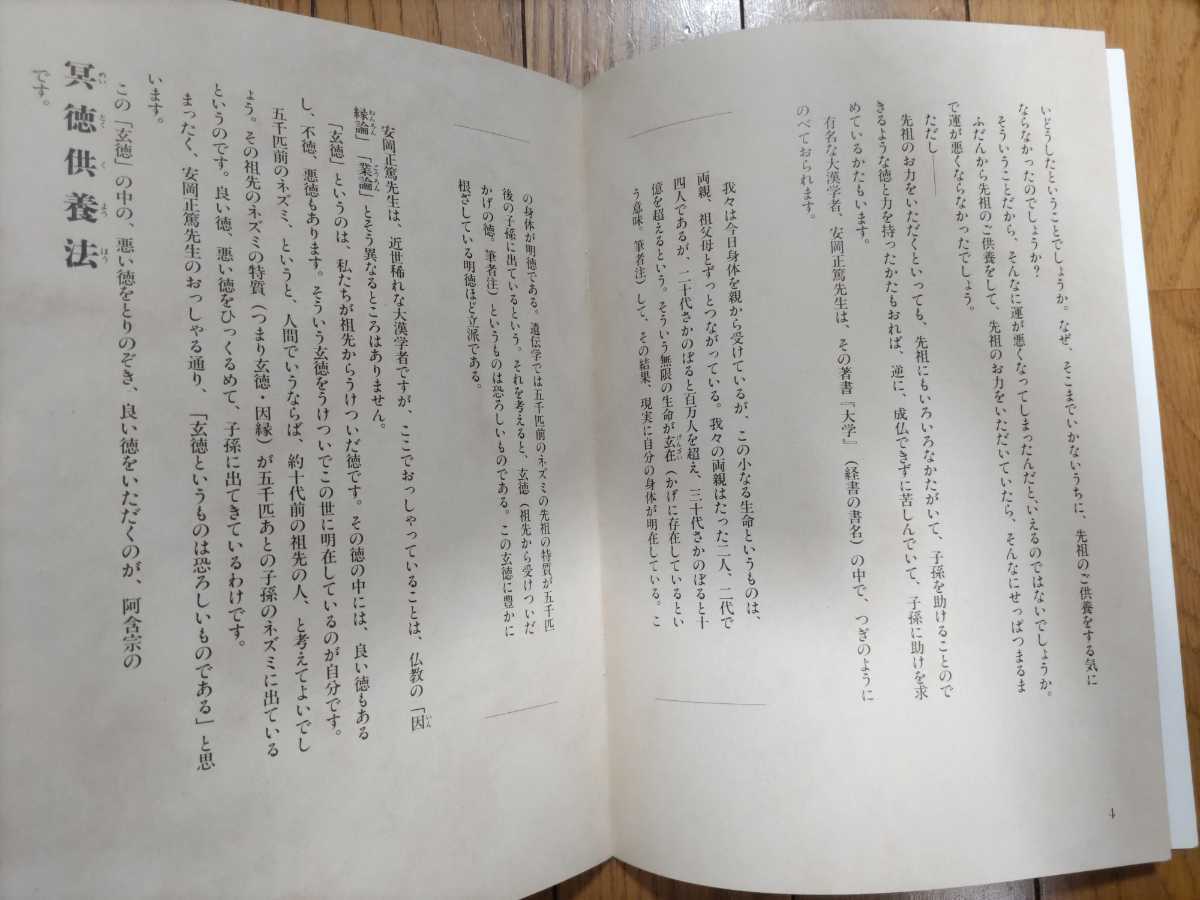 いどうしたということでしょうか。なぜ、そこまでいかないうちに、先祖のご供養をする気に
ならなかったのでしょうか？
そういうことだから、そんなに運が悪くなってしまったんだと、いえるのではないでしょうか。
ふだんから先祖のご供養をして、先祖のお力をいただいていたら、そんなにせっぱつまるま
で運が悪くならなかったでしょう。
ただし――
先祖のお力をいただくといっても、先祖にもいろいろなかたがいて、子孫を助けることので
きるような徳と力を持ったかたもおれば、逆に、成仏できずに苦しんでいて、子孫に助けを求
めているかたもいます。
有名な大漢学者、安岡正篤先生は、その著書『大学』（経書の書名）の中で、つぎのように
のべておられます。
我々は今日身体を親から受けているが、この小なる生命というものは、
両親、祖父母とずっとつながっている。我々の両親はたった二人、二代で
四人であるが、二十代さかのぼると百万人を超え、三十代さかのぼると十
億を超えるという。そういう無限の生命が玄在（かげに存在しているとい
げんざい
う意味。筆者注）して、その結果、現実に自分の身体が明在している。こ
4
の身体が明徳である。遺伝学では五千匹前のネズミの先祖の特質が五千匹
後の子孫に出ているという。それを考えると、玄徳（祖先から受けついだ
かげの徳。筆者注）というものは恐ろしいものである。この玄徳に豊かに
根ざしている明徳ほど立派である。
安岡正篤先生は、近世稀れな大漢学者ですが、ここでおっしゃっていることは、仏教の「因
いん
縁論」「業論」とそう異なるところはありません。
ねんろん ごうろん
「玄徳」というのは、私たちが祖先からうけついだ徳です。その徳の中には、良い徳もある
し、不徳、悪徳もあります。そういう玄徳をうけついでこの世に明在しているのが自分です。
五千匹前のネズミ、というと、人間でいうならば、約十代前の祖先の人、と考えてよいでし
ょう。その祖先のネズミの特質（つまり玄徳・因縁）が五千匹あとの子孫のネズミに出ている
というのです。良い徳、悪い徳をひっくるめて、子孫に出てきているわけです。
まったく、安岡正篤先生のおっしゃる通り、「玄徳というものは恐ろしいものである」と思
います。
この「玄徳」の中の、悪い徳をとりのぞき、良い徳をいただくのが、阿含宗の
冥徳供養法
めいとくくようほう
です。